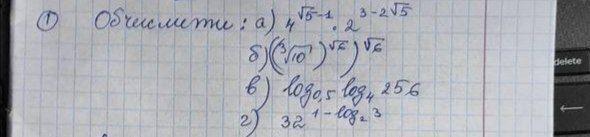 ① Обчислити: а) 4^{√5-1} · 2^{3-2√5}
б) ((∛10)^{√6})^{√6}
в) log_{0,5} log_4 256
г) 32^{1-log_2 3}
delete
←